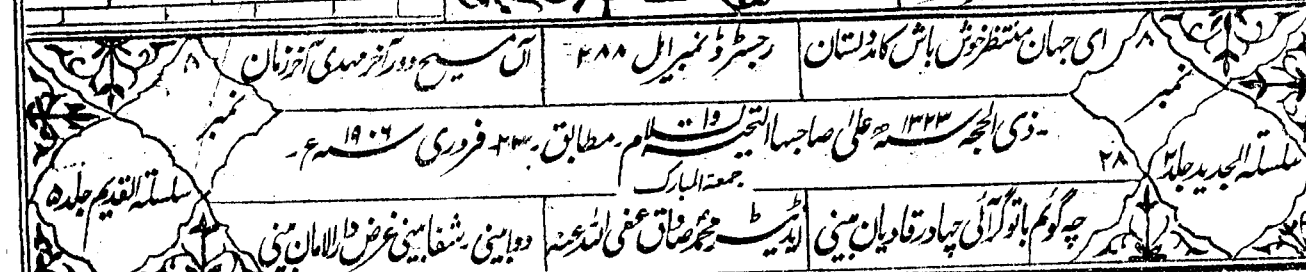 ای جہان منتظر خوش باش کامد دلستان
رجسٹرڈ نمبر ایل ۲۸۸
آں مسیح دور آخر مہدی آخر زمان
نمبر ۸
سلسلہ الجدید جلد ۲
۲۸ ذی الحجہ ۱۳۲۳ سنہ ھ علیٰ صاحبہا التحیۃ والسلام مطابق ۲۳ فروری ۱۹۰۶ سنہ ء
جمعۃ المبارک
نمبر ۸
سلسلۃ القدیم جلد ۵
چہ گویم باتو گر آئی چہا در قادیان بینی
ایڈیٹر محمد صادق عفی اللہ عنہ
دوا بینی شفا بینی غرض دارالامان بینی